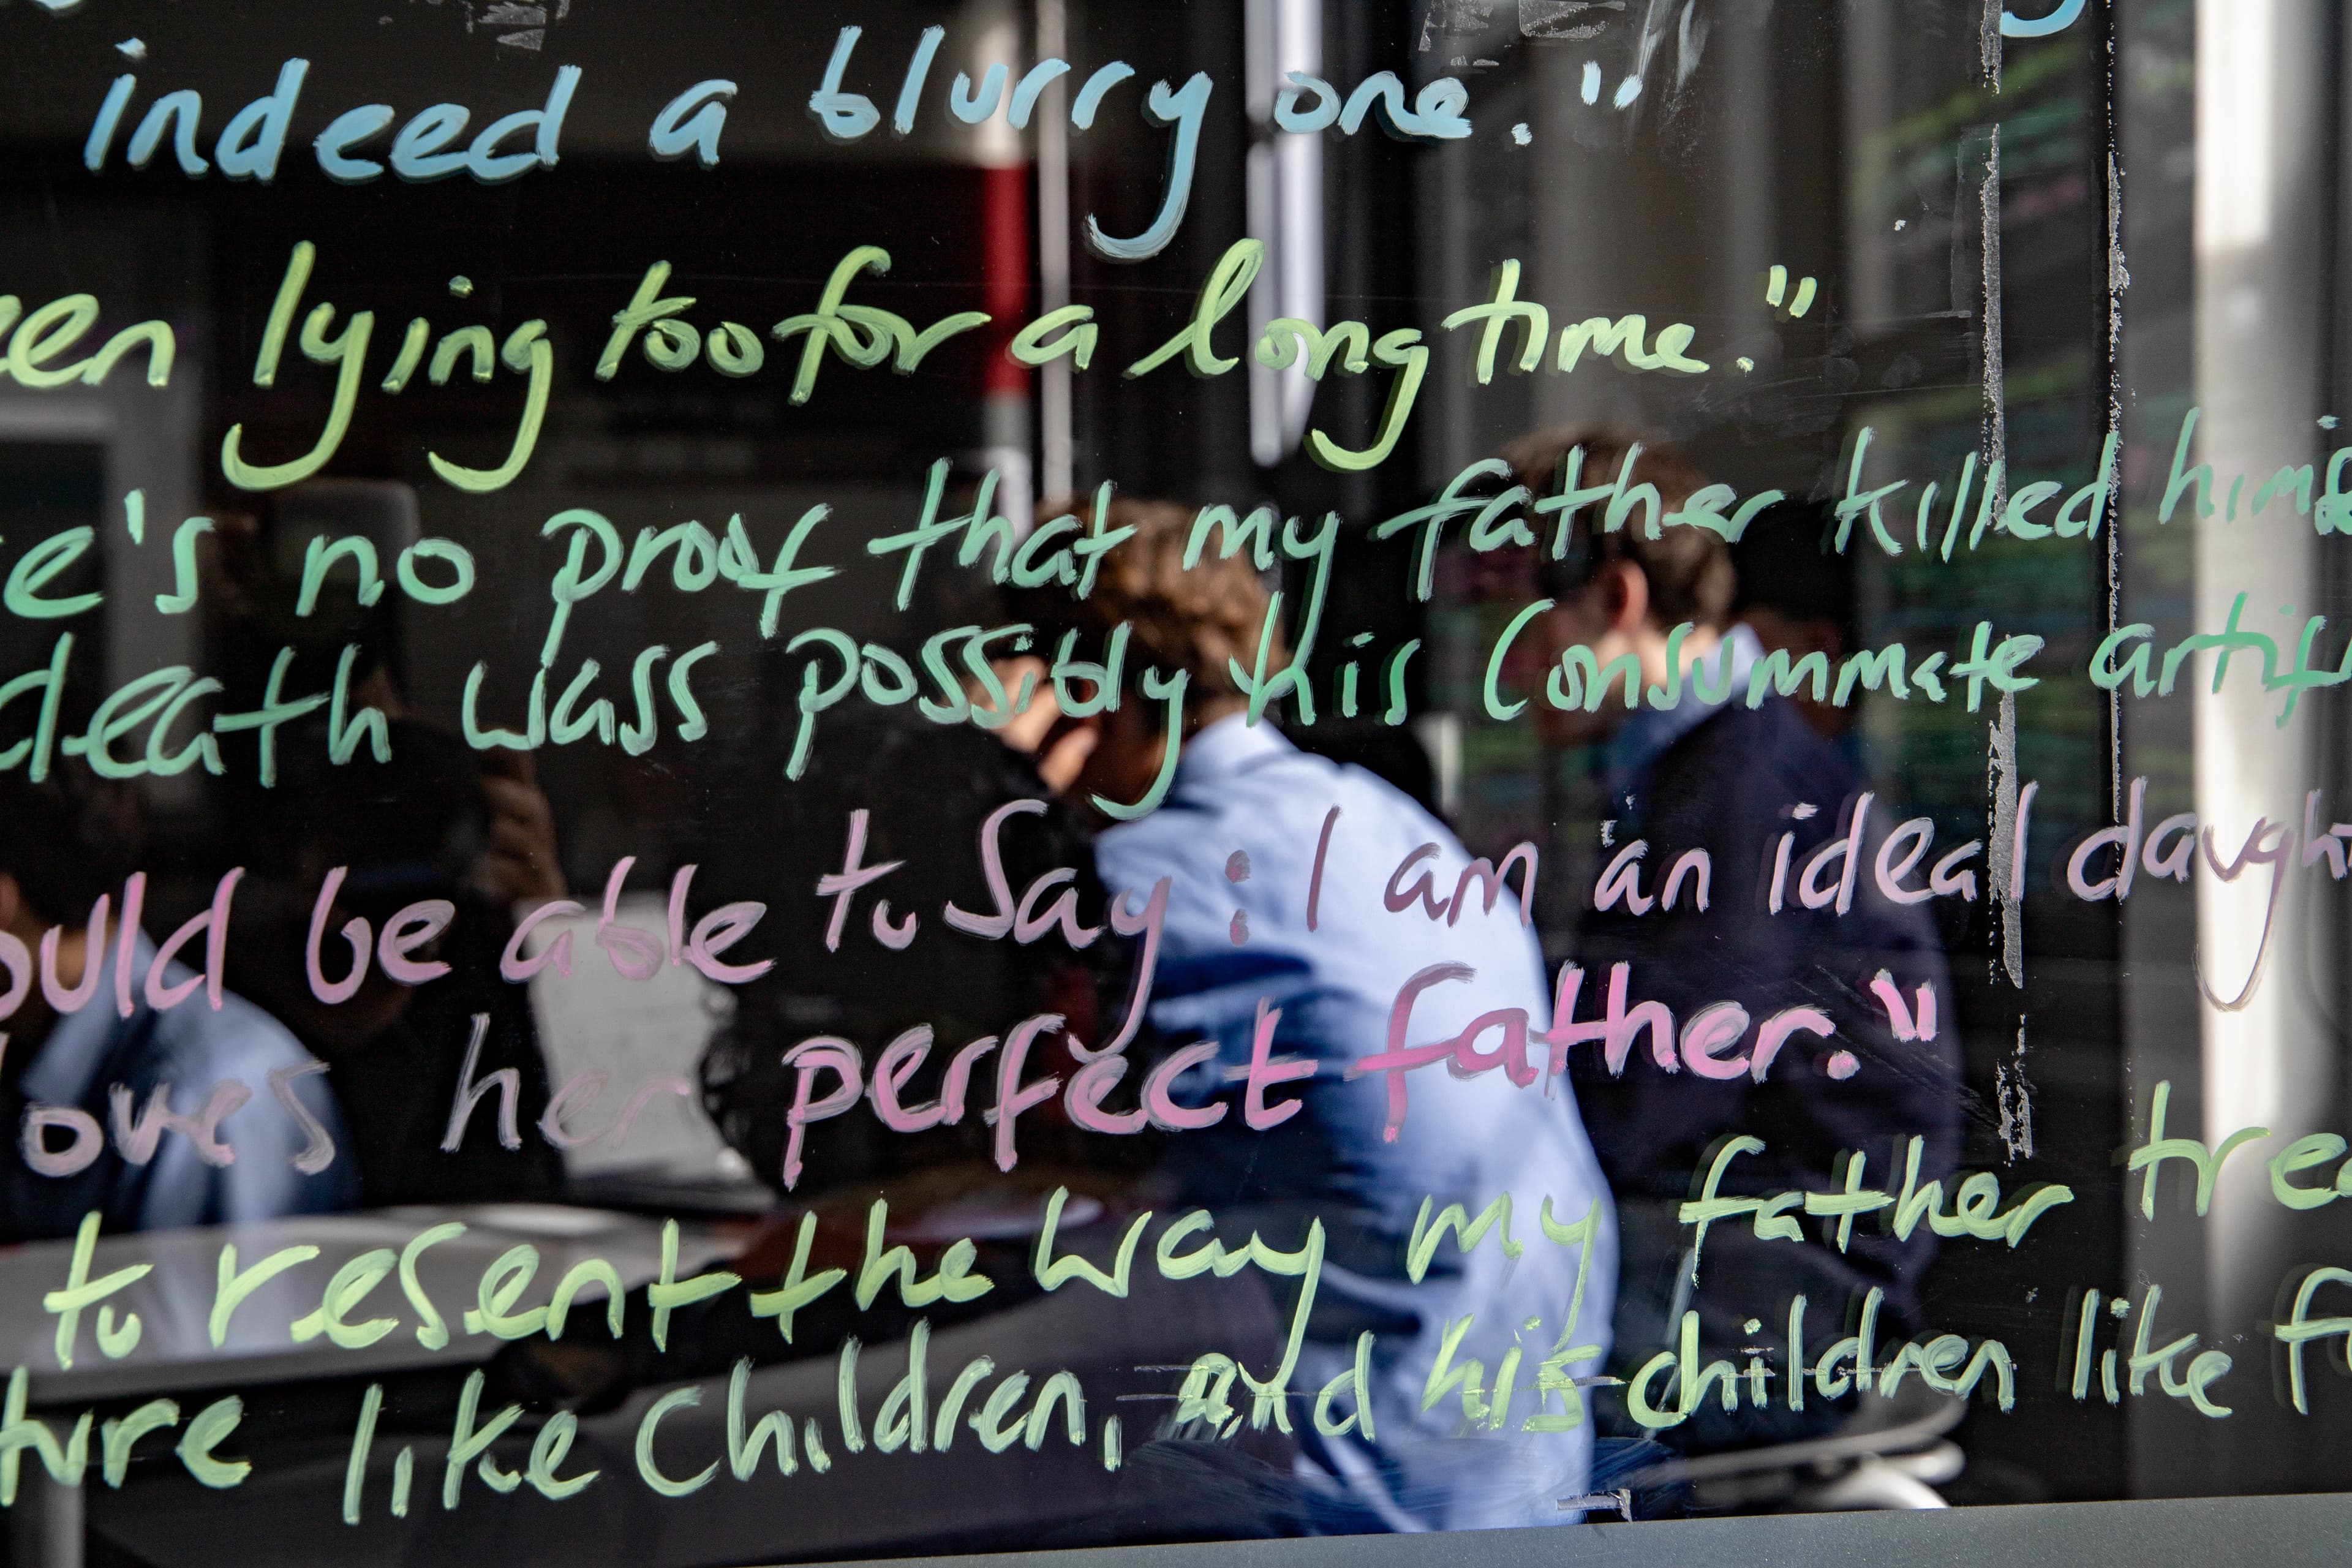 indeed a blurry one."
een lying too for a long time."
e's no proof that my father killed himse
death wass possibly his Consummate artifi
ould be able to Say: I am an ideal daugh
oves her perfect father."
to resent the way my father trea
ture like Children, and his children like f